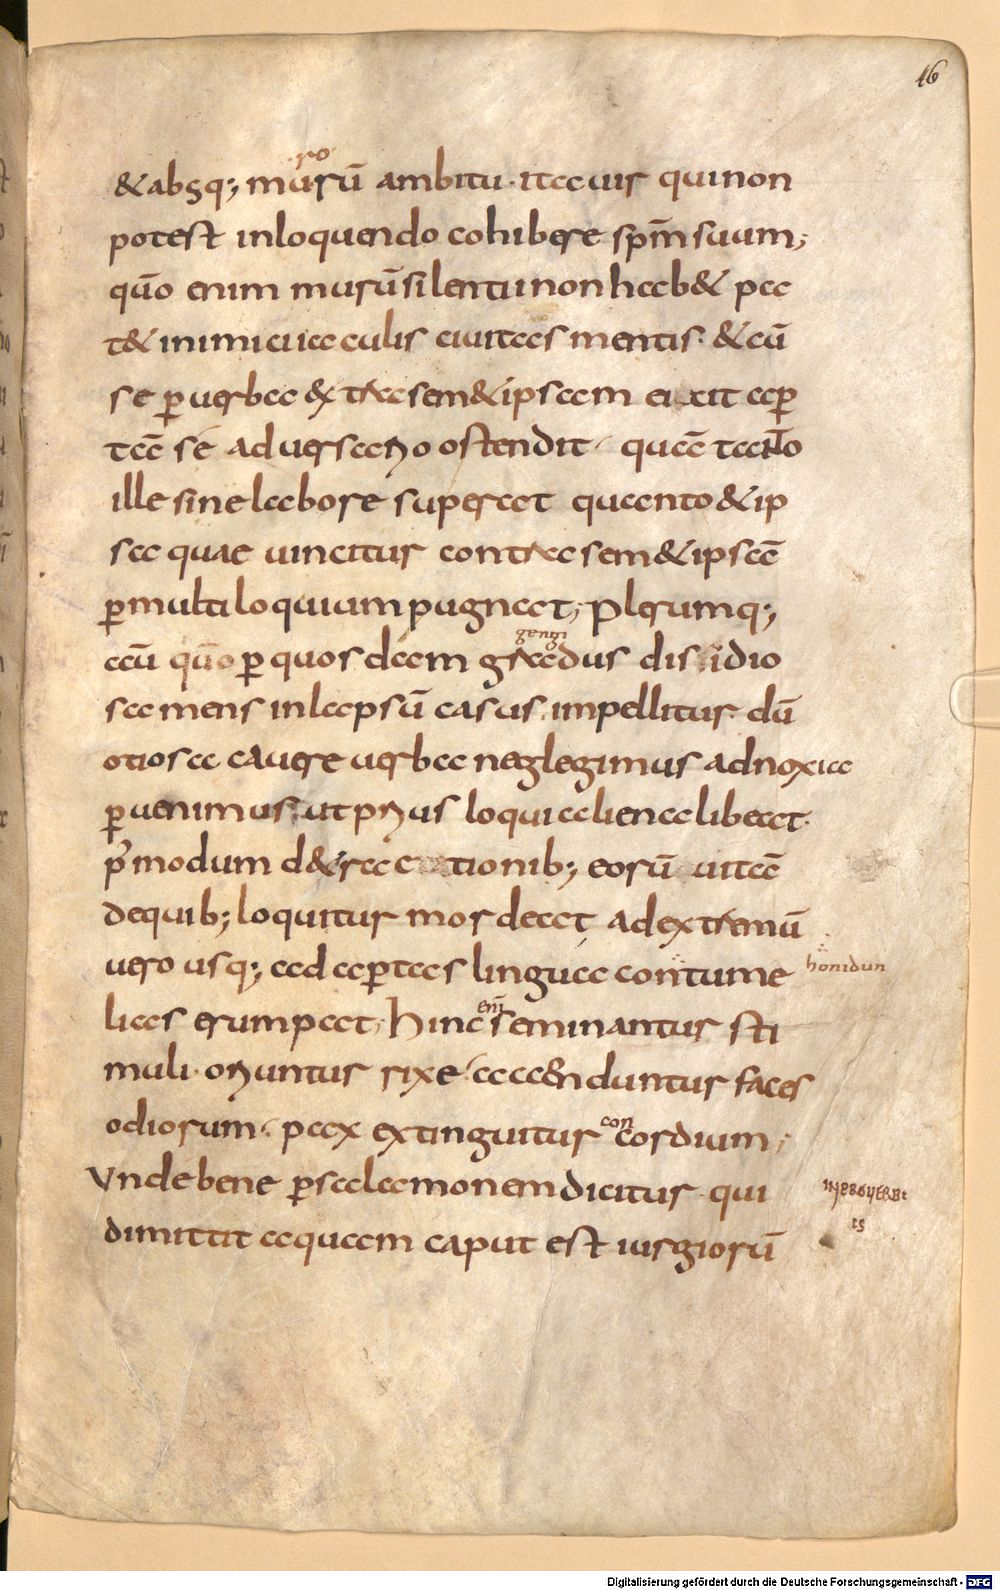 46
ro
&absq; murū ambitu· ita uir qui non
potest inloquendo cohibere spm̄ suum;
quō enim murū silentii non hab& pa
t& inimici iaculis ciuitas mentis· & cū
se p̄ uerba & tra sem&ipsam eicit ap̄
tā se aduersario ostendit· quā tanto
ille sine labore superat quanto & ip
sa quae uincitur contra sem&ipsā
p̄ multiloquium pugnat; Plerumq;
gem
cū quō p̄ quosdam gradus dissidio
sa mens inlapsū casus impellitur· dū
otiosa cauere uerba neglegimus adnoxia
p̄uenimus· ut prius loqui aliena libeat·
p̄modum d&ractionib; eorū uitā
dequib; loquitur mordeat ad extremū
uero usq; ad ap̄tas linguae contume
honidun
lias erumpat· Hinc enī seminantur sti
muli· oriuntur rixe· accenduntur faces
odiorum· pax extinguitur concordium;
Unde bene p̄ salamonem dicitur· qui
INPROUERBI
IS
dimittit aquam caput est iurgiorū
Digitalisierung gefördert durch die Deutsche Forschungsgemeinschaft - DFG